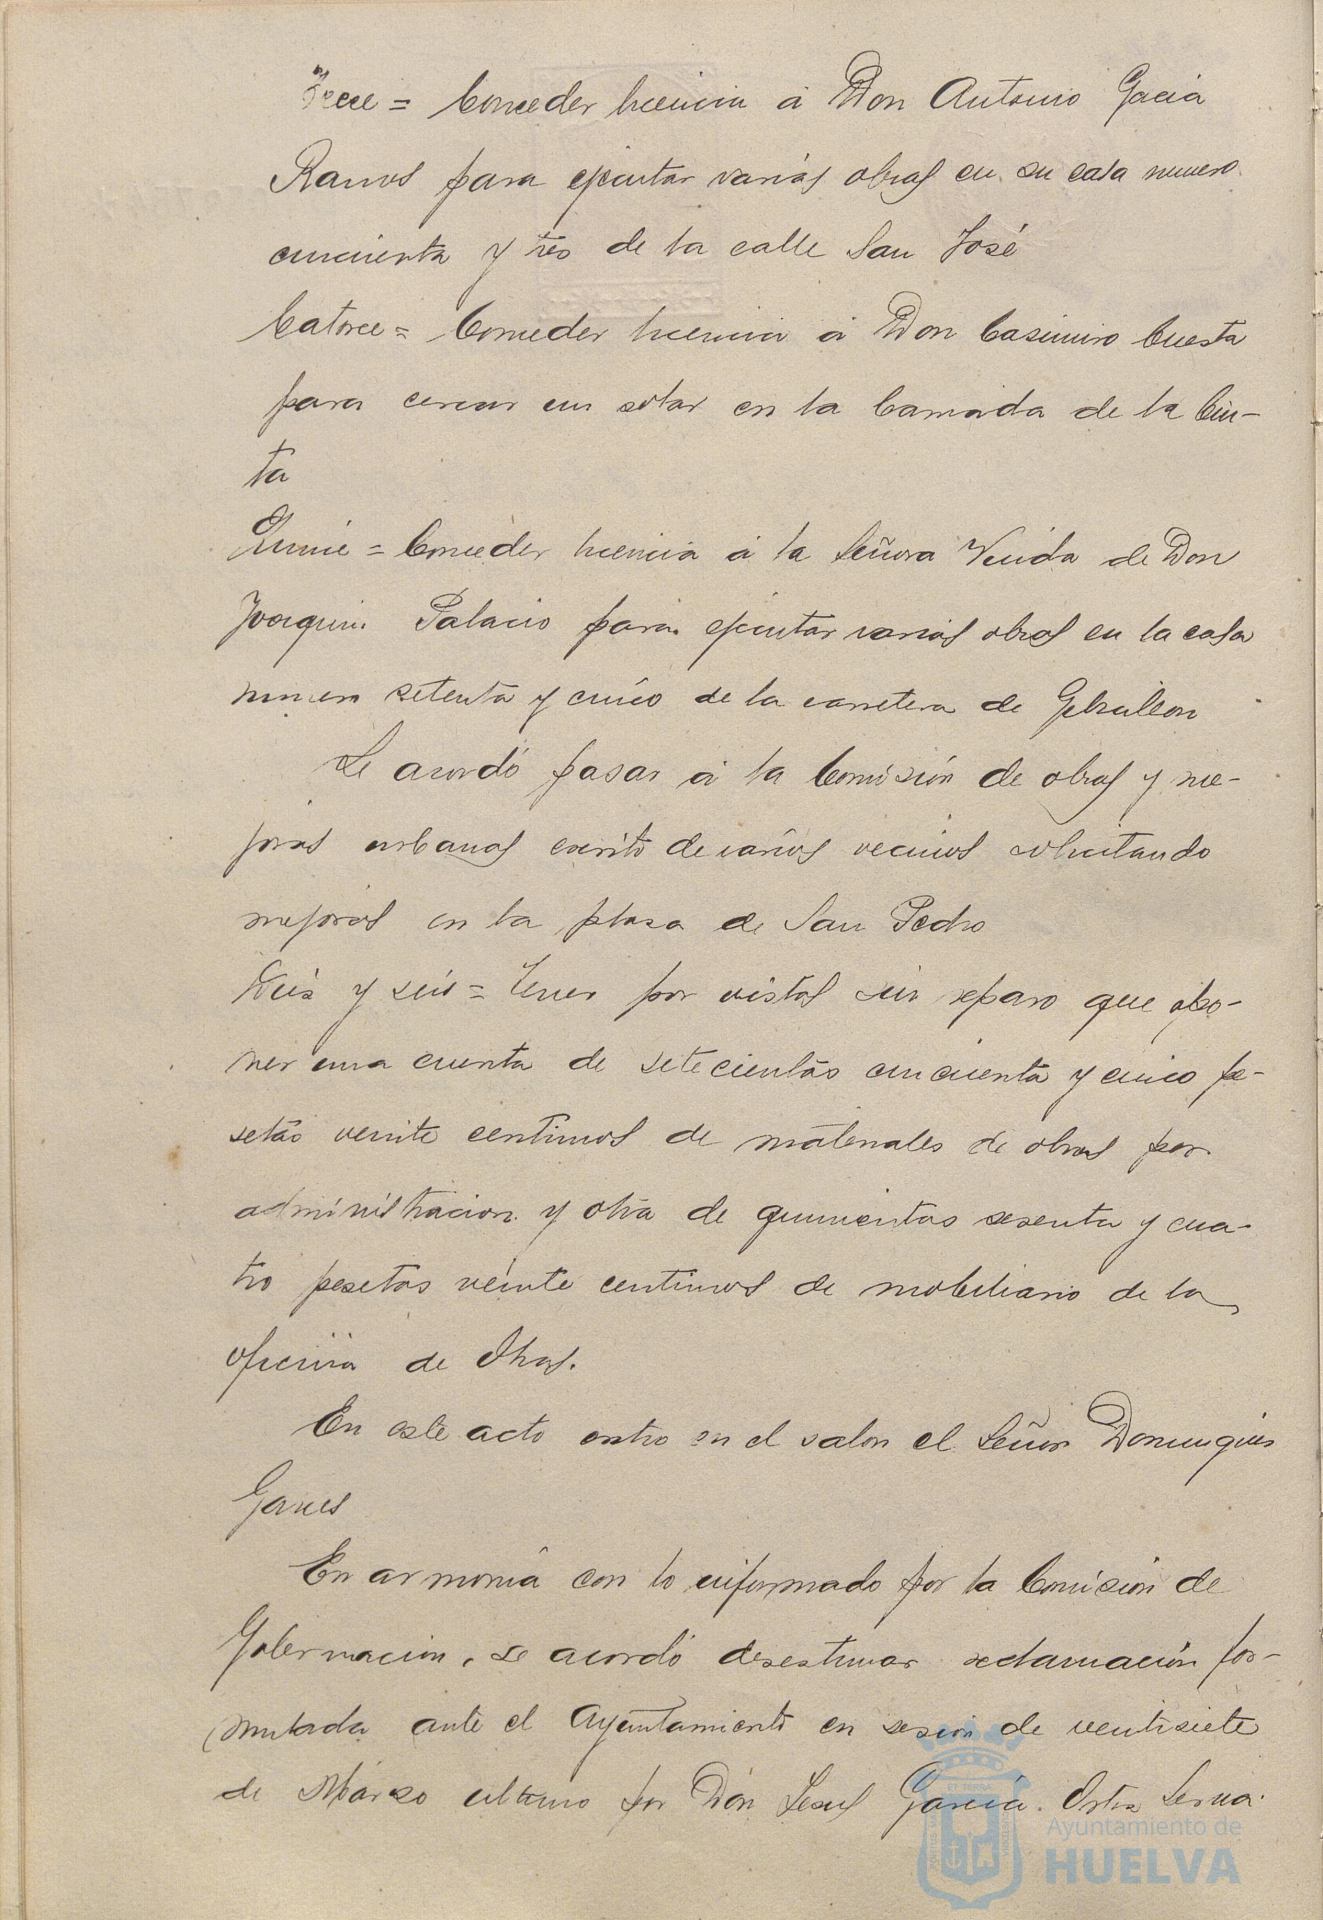 Trece = Conceder licencia á Don Antonio Gacia
Ramos para ejecutar varias obras en su casa numero
cincuenta y tres de la calle San José
Catorce = Conceder licencia á Don Casimiro Cuesta
para cercar un solar en la Barriada de la Cin-
ta
Quince = Conceder licencia á la Señora Viuda de Don
Joaquin Palacio para ejecutar varias obras en la casa
numero setenta y cinco de la carretera de Gibraleon
Se acordó pasar á la Comisión de obras y me-
joras urbanas escrito de varios vecinos solicitando
mejoras en la plaza de San Pedro
Diez y seis = Tener por vistas sin reparo que opo-
ner una cuenta de setecientas cincuenta y cinco pe-
setas veinte centimos de materiales de obras por
administracion y otra de quinientas sesenta y cua-
tro pesetas veinte centimos de mobiliario de la
oficina de Obras.
En este acto entro en el salon el Señor Dominguez
Garces
En armonia con lo informado por la Comision de
Gobernacion, se acordó desestimar reclamación for-
mulada ante el Ayuntamiento en sesion de veintisiete
de Marzo ultimo por Don Jesus García Ortiz Serna
Ayuntamiento de
HUELVA